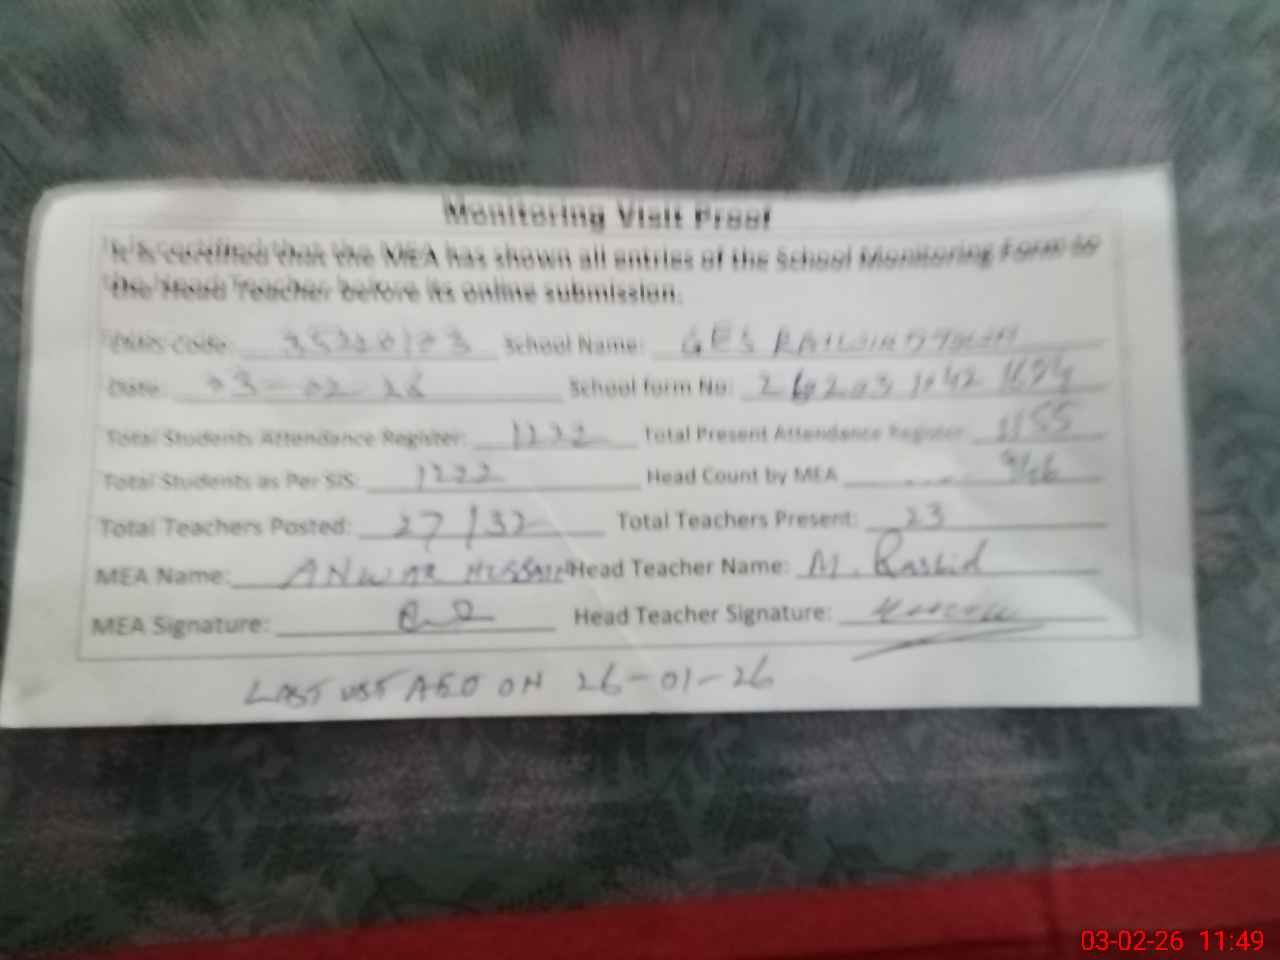 Monitoring Visit Proof
It is certified that the MEA has shown all entries of the School Monitoring Form to
the Head Teacher before its online submission.
EMIS Code: School Name: GES
Date: 03-02-26 School form No:
Total Students Attendance Register: 1222 Total Present Attendance Register: 1155
Total Students as Per SIS: 1222 Head Count by MEA
Total Teachers Posted: 27/32 Total Teachers Present: 23
MEA Name: ANWAR HUSSAIN Head Teacher Name: M. Rashid
MEA Signature: Head Teacher Signature:
LAST AEO ON 26-01-26
03-02-26 11:49